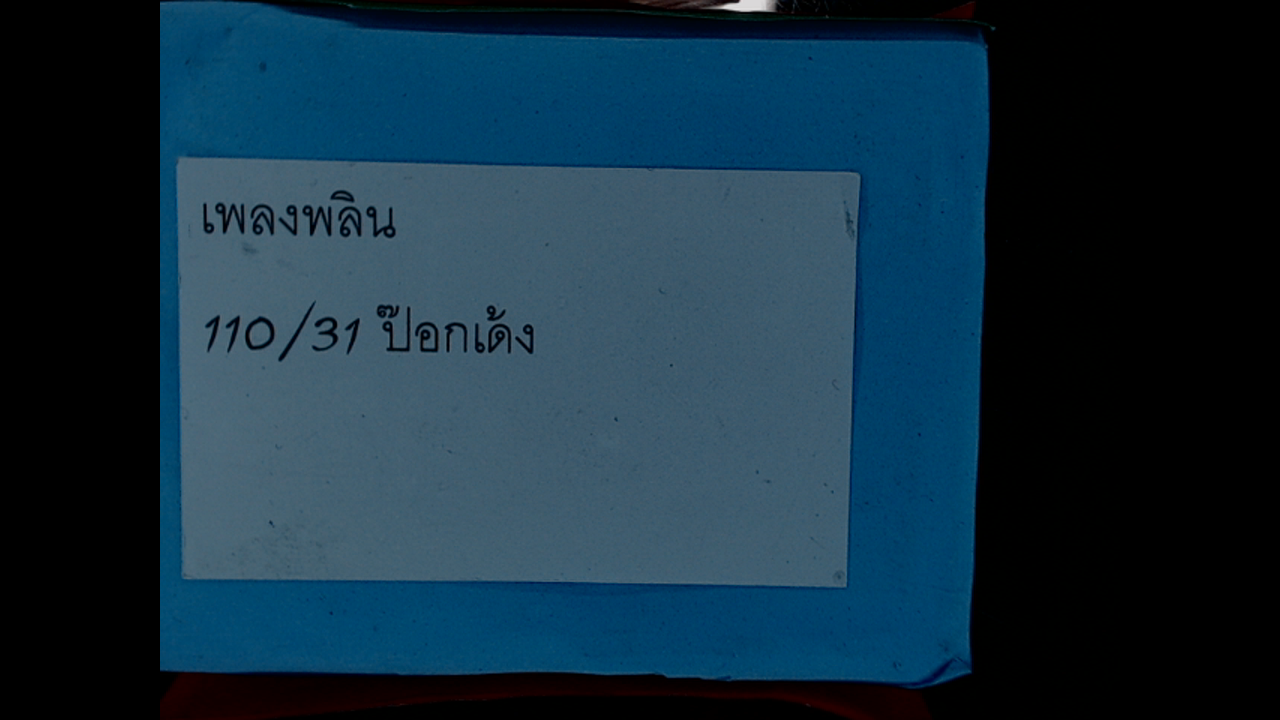 เพลงพลิน
110/31 ป๊อกเด้ง